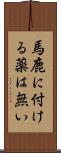 馬鹿に付け
る薬は無い